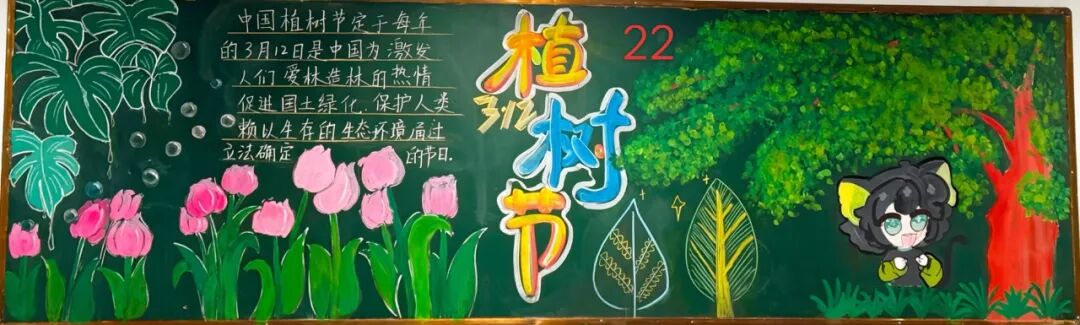 中国植树节定于每年
的3月12日是中国为激发
人们爱林造林的热情
促进国土绿化、保护人类
赖以生存的生态环境通过
立法确定 的节日.
植
3.12
树
节
22